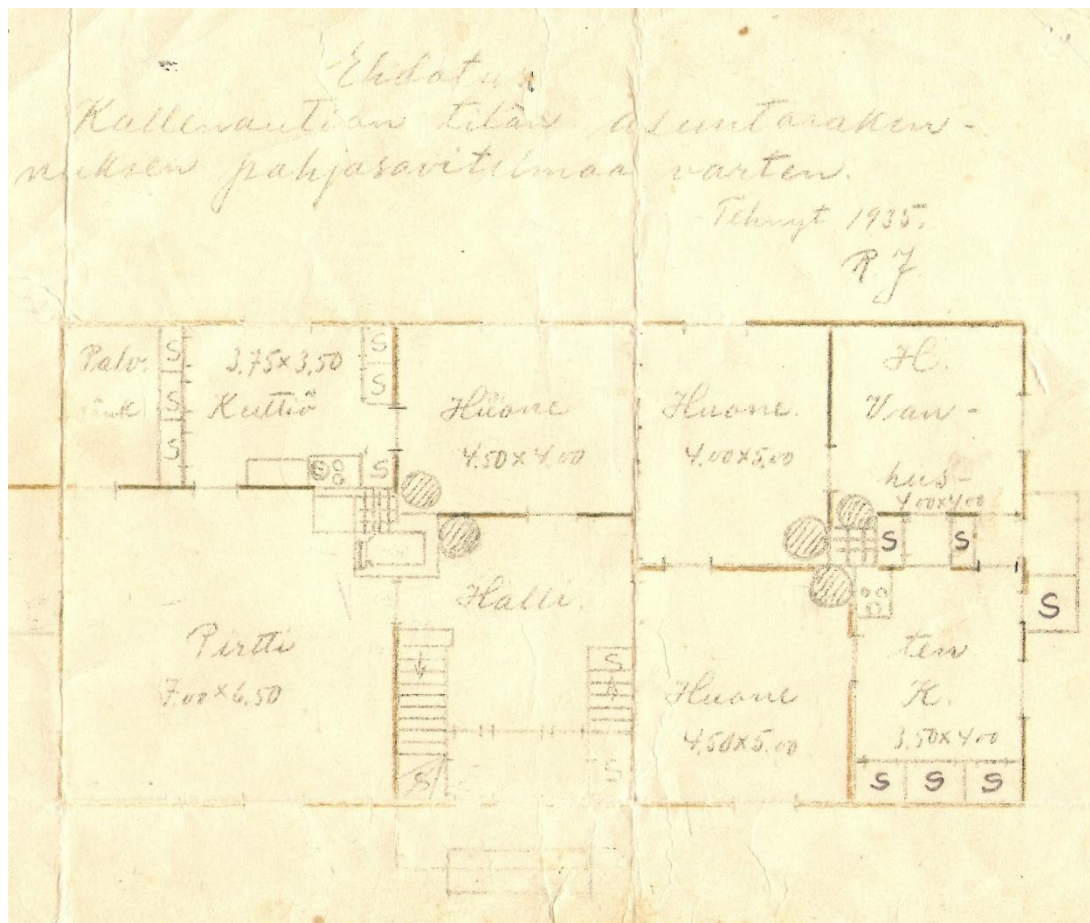 Ehdotus
Kallenautian tilan asuntoraken-
nuksen pohjasovitelmaa varten.
Tehnyt 1935.
R J.
Palv.
S
S
S
3.75×3.50
Keittiö
S
S
S
Huone
4.50×4.00
Huone.
4.00×5.00
H.
Van-
hus-
4.00×4.00
S
S
S
Pirtti
7.00×6.50
Halli.
S
S
S
Huone
4.50×5.00
ten
K.
3.50×4.00
S
S
S